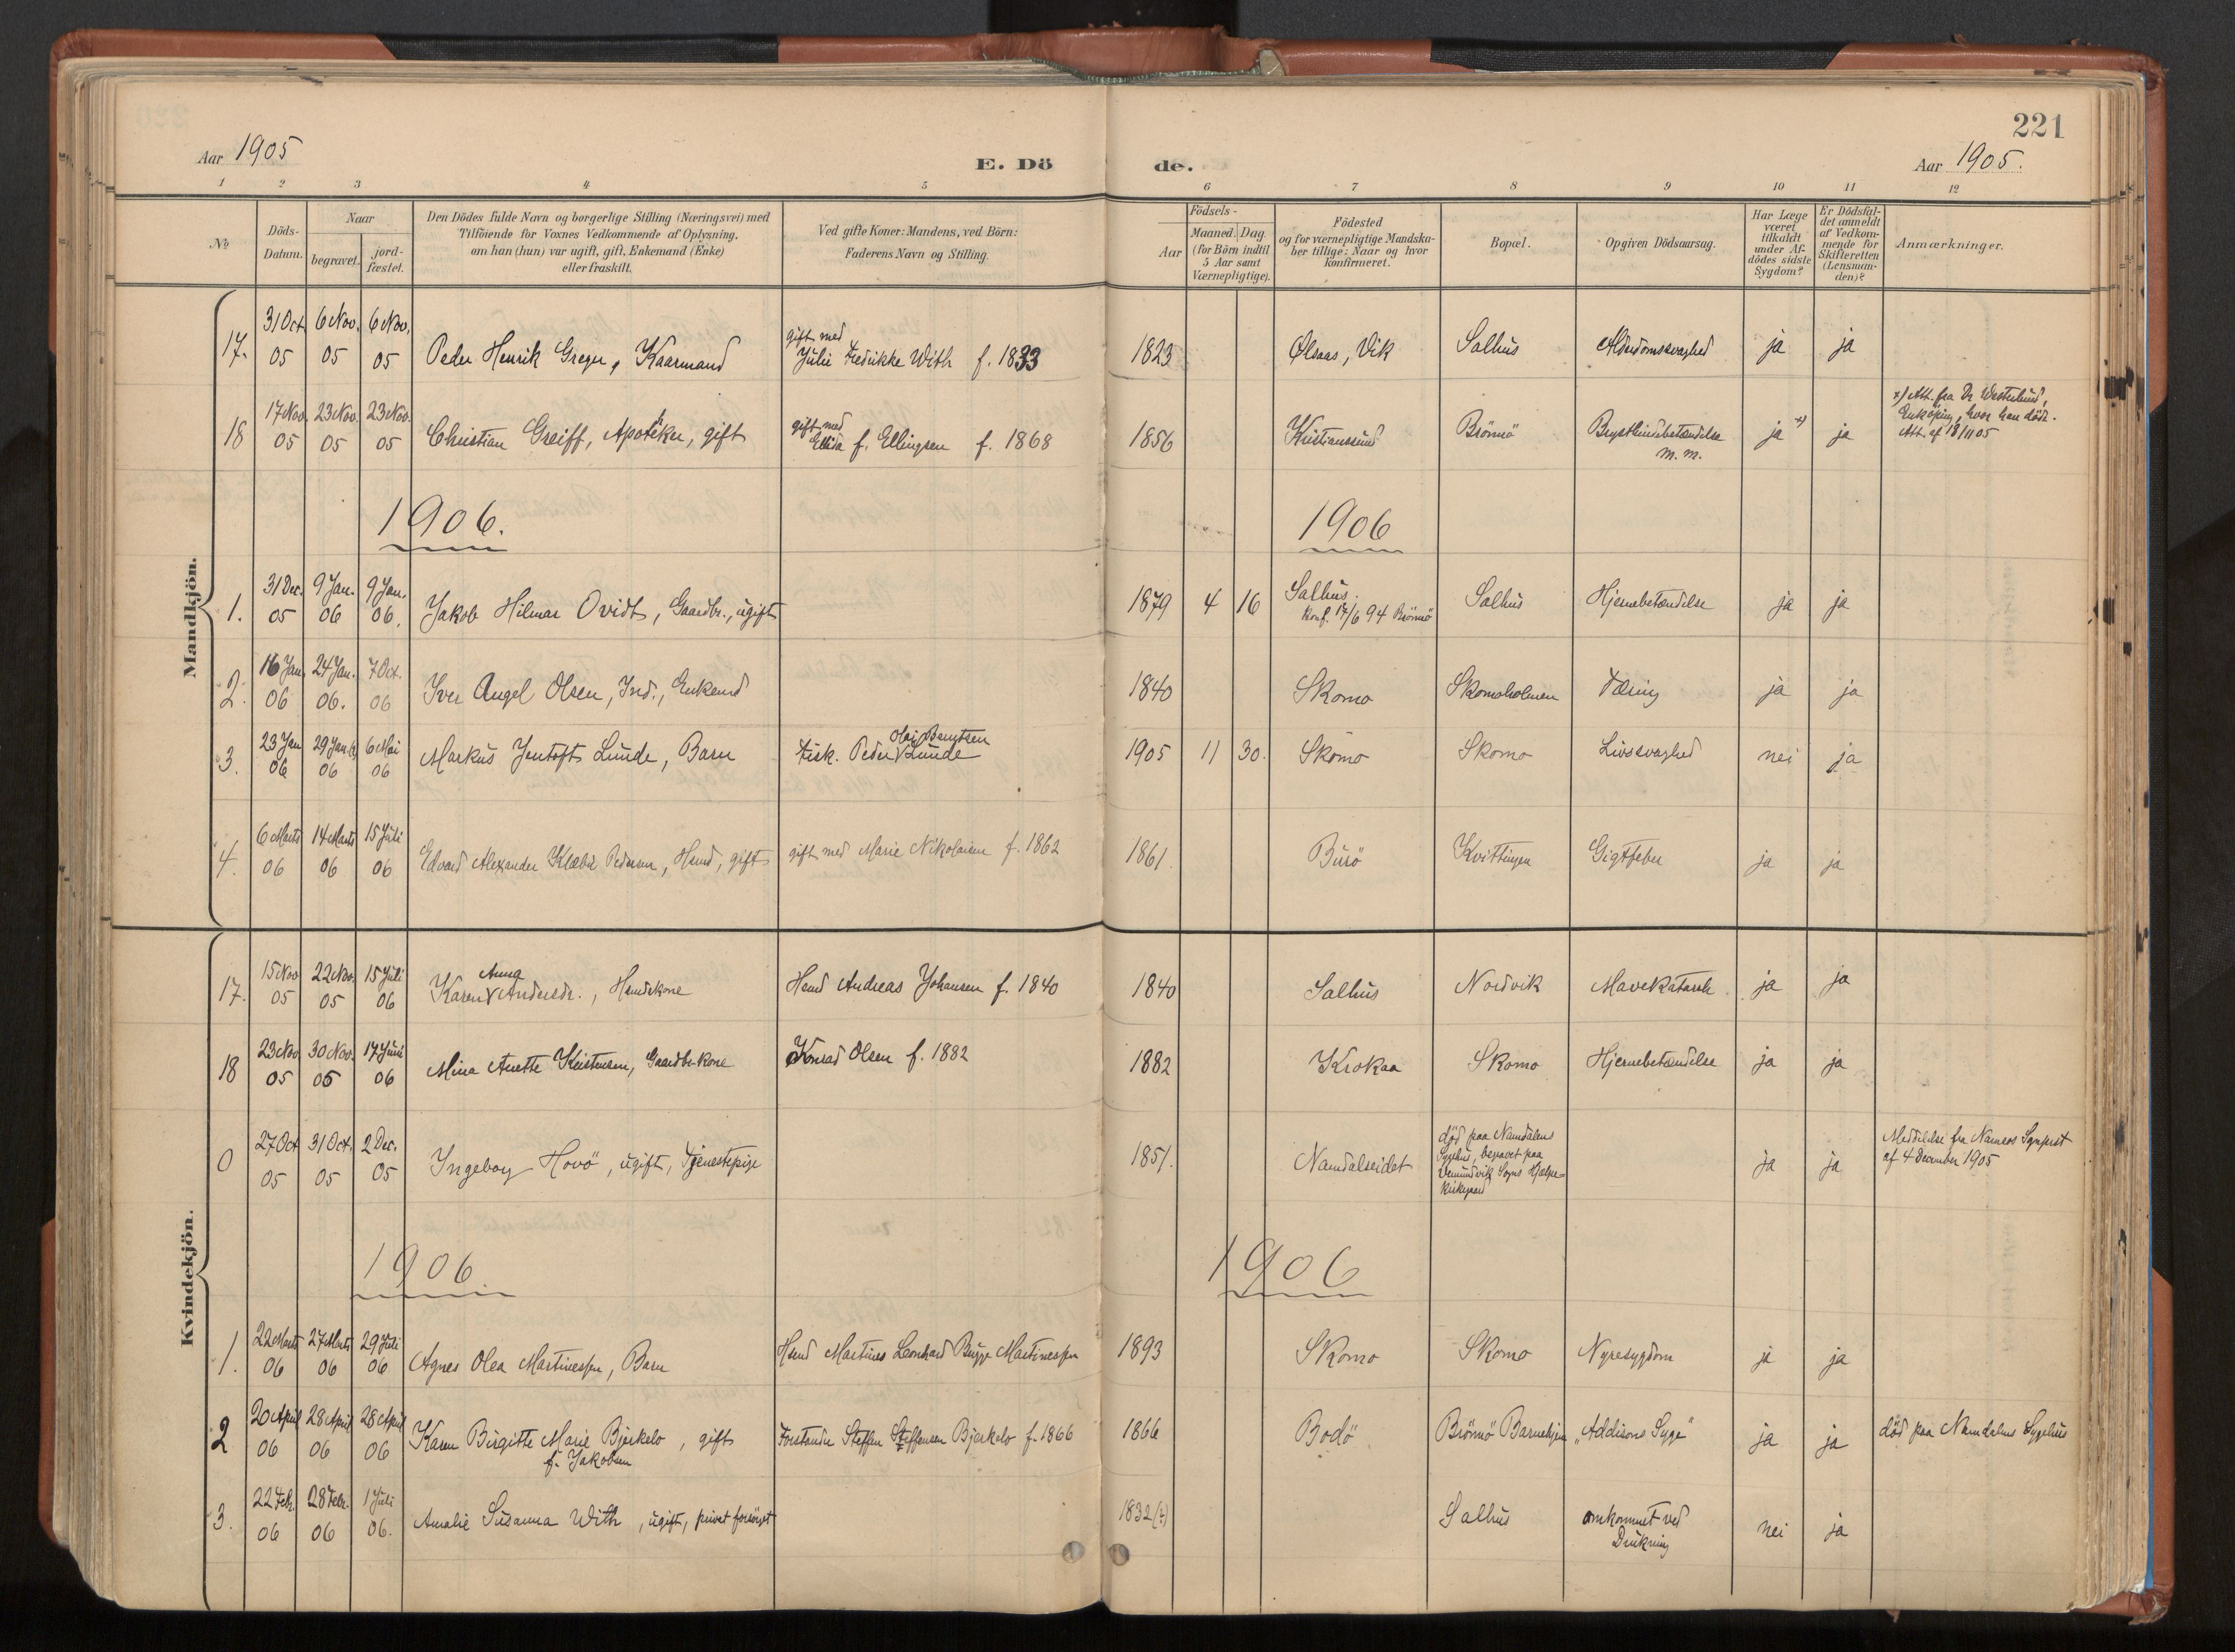 221
Aar 1905
E. Dö
de.
Aar 1905.
1 2 3 4 5 6 7 8 9 10 11 12
No
Döds-
Datum.
Naar
begravet.
jord-
fæstet.
Den Dödes fulde Navn og borgerlige Stilling (Næringsvei) med
Tilföiende for Voxnes Vedkommende af Oplysning,
om han (hun) var ugift, gift, Enkemand (Enke)
eller fraskilt.
Ved gifte Koner: Mandens, ved Börn:
Faderens Navn og Stilling.
Födsels-
Aar
Maaned. Dag
(for Börn indtil
5 Aar samt
Værnepligtige).
Födested
og for værnepligtige Mandska-
ber tillige: Naar og hvor
konfirmeret.
Bopæl.
Opgiven Dödsaarsag.
Har Læge
været
tilkaldt
under Af-
dödes sidste
Sygdom?
Er Dödsfal-
det anmeldt
af Vedkom-
mende for
Skifteretten
(Lensman-
den)?
Anmærkninger.
Mandkjön.
17. 31 Oct 05 6 Nov. 05 6 Nov. 05 Peder Henrik Greger, Kaarmand gift med Julie Fredrikke With f. 1833 1823 Ølsaas, Vik Salhus Alderdomssvaghed ja ja
18 17 Nov. 05 23 Nov. 05 23 Nov. 05 Christian Greiff, Apotheker, gift gift med Ellida f. Ellingsen f. 1868 1856 Kristianssund Brönnö Brysthindebetændelse m. m. ja x) ja x) Att. fra Dr Westerlund, Enköping, hvor han döde. Att. af 18/11 05
1906. 1906
1. 31 Dec. 05 9 Jan. 06 9 Jan. 06. Jakob Hilmar Ovidt, Gaardbr., ugift 1879 4 16 Salhus. Konf. 17/6 94 Brönnö Salhus Hjernebetændelse ja ja
2. 16 Jan. 06 24 Jan. 06. 7 Oct. 06 Iver Angel Olsen, Ind., Enkemd 1840 Skomo Skomoholmen Tæring ja ja
3. 23 Jan 06 29 Jan. 06 6 Mai 06 Markus Jentoft Lunde, Barn Fisk. Peder Olai Bentsen Lunde 1905 11 30. Skomo Skomo Livssvaghed nei ja
4. 6 Marts 06 14 Marts 06 15 Juli 06 Edvard Alexander Klæbu Pedersen, Hsmd, gift gift med Marie Nikolaisen f. 1862 1861. Burö Kvittingen Gigtfeber ja ja
Kvindekjön.
17. 15 Nov 05 22 Nov. 05 15 Juli 06 Karen Anna Andersdr., Hsmdskone Hsmd Andreas Johansen f. 1840 1840 Salhus Nordvik Mavekatarrh ja ja
18 23 Nov 05 30 Nov. 05 17 Juni 06 Mina Anette Kristensen, Gaardbr.kone Konrad Olsen f. 1882 1882 Krokaa Skomo Hjernebetændelse ja ja
0 27 Oct 05 31 Oct. 05 2 Dec. 05 Ingeborg Hovö, ugift, Tjenestepige 1851. Namdalseidet död paa Namdalens Sygehus, begravet paa Vemundvik Sogns Hjælpe-Kirkegaard ja ja Meddelelse fra Namsos Sognprest af 4 December 1905
1906. 1906
1. 22 Marts 06 27 Marts 06 29 Juli 06 Agnes Olea Martinessen, Barn Hsmd Martines Leonhard Bugge Martinessen 1893 Skomo Skomo Nyresygdom ja ja
2 20 April 06 28 April 06 28 April 06 Karen Birgitte Marie Bjerkelo, gift f. Jakobsen Forstander Steffen Steffensen Bjerkelo f. 1866 1866 Bodö Brönnö Barnehjem „Addisons Syge“ ja ja död paa Namdalens Sygehus
3. 22 Febr. 06 28 Febr. 06 1 Juli 06. Amalie Susanna With, ugift, privat forsörget 1832(?) Salhus omkommet ved Drukning nei ja